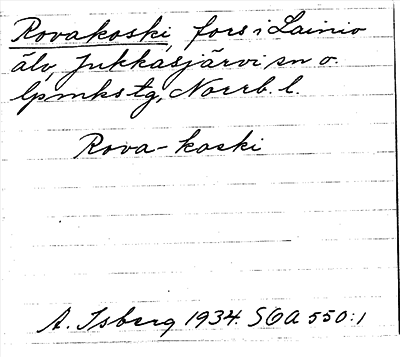 Rovakoski, fors i Lainio
älv, Jukkasjärvi sn o.
lpmks tg, Norrb. l.
Rova-koski
A. Isberg 1934. SOA 550:1